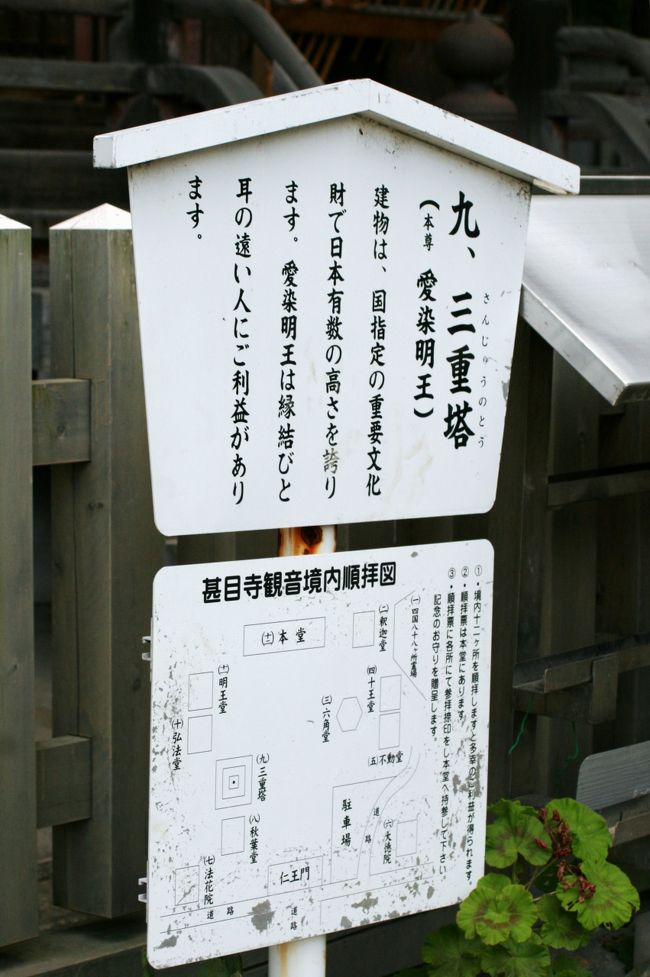 九、三重塔
さんじゅうのとう
（本尊　愛染明王）
建物は、国指定の重要文化
財で日本有数の高さを誇り
ます。愛染明王は縁結びと
耳の遠い人にご利益があり
ます。
甚目寺観音境内順拝図
①・境内十二ヶ所を順拝しますと多幸のご利益が得られます。
②・順拝票は本堂にあります。
③・順拝票に各所にて参拝捺印をし本堂へ持参して下さい。
記念のお守りを贈呈します。
(一)四国八十八ヶ所霊場
(二)釈迦堂
(三)六角堂
(四)十王堂
(五)不動堂
(六)大徳院
(七)法花院
(八)秋葉堂
(九)三重塔
(十)弘法堂
(十一)明王堂
(十二)本堂
駐車場
道路
仁王門
道路
道路